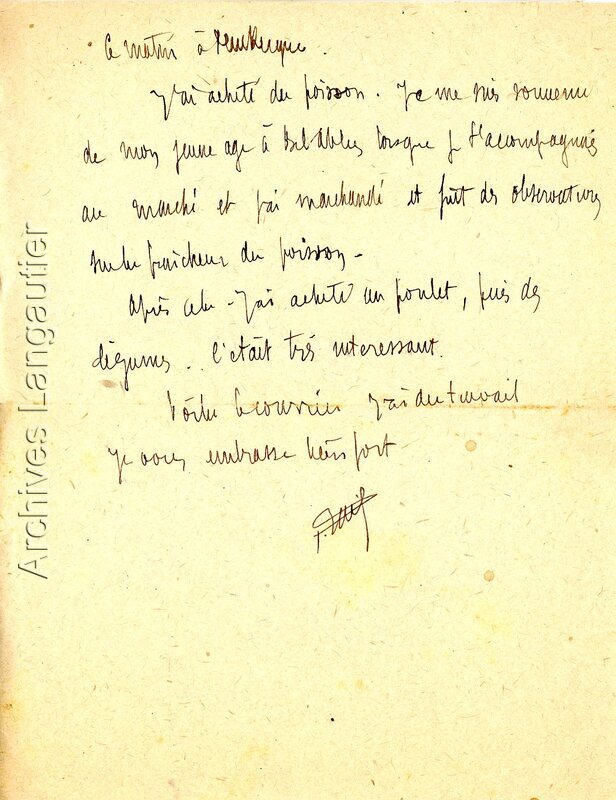 Ce matin à Dunkerque.
J'ai acheté du poisson. Je me suis souvenu
de mon jeune age à Bel Abbes lorsque je t'accompagnais
au marché et j'ai marchandé et fait des observations
sur la fraicheur du poisson -
Après cela - j'ai acheté un poulet, puis des
légumes.. C'était très interessant.
Voila le courrier j'ai du travail
Je vous embrasse bien fort
Archives Langautier